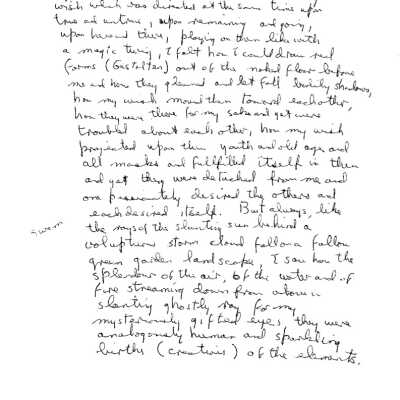 wish which was directed at the same time upon
true and untrue, upon remaining and going,
upon here and there, playing on them like with
a magic thing, I felt how I could draw red
forms (Gestalten) out of the naked floor before
me and how they gleamed and let fall lovely shadows,
how my wish moved them toward each other,
how they were there for my sake and yet were
troubled about each other, how my wish
projected upon them youth and old age and
all masks and fulfilled itself in them
and yet they were detached from me and
one passionately desired the others and
each desired itself. But always, like
swem
the rays of the slanting sun behind a
voluptuous storm cloud fall on a fallow
green garden landscape, I saw how the
splendour of the air, of the water and of
fire streaming down from above in
slanting ghostly ray for my
mysteriously gifted eyes, they were
analogously human and sparkling
births (creations) of the elements.